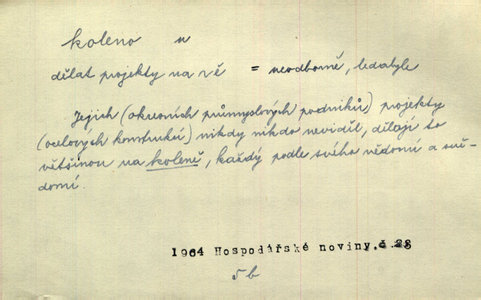 koleno n
dělat projekty na ně = neodborně, ledabyle
Jejich (okresních průmyslových podniků) projekty
(ocelových konstrukcí) nikdy nikdo neviděl, dělají to
většinou na koleně, každý podle svého vědomí a svě-
domí.
1964 Hospodářské noviny.č.23
5b